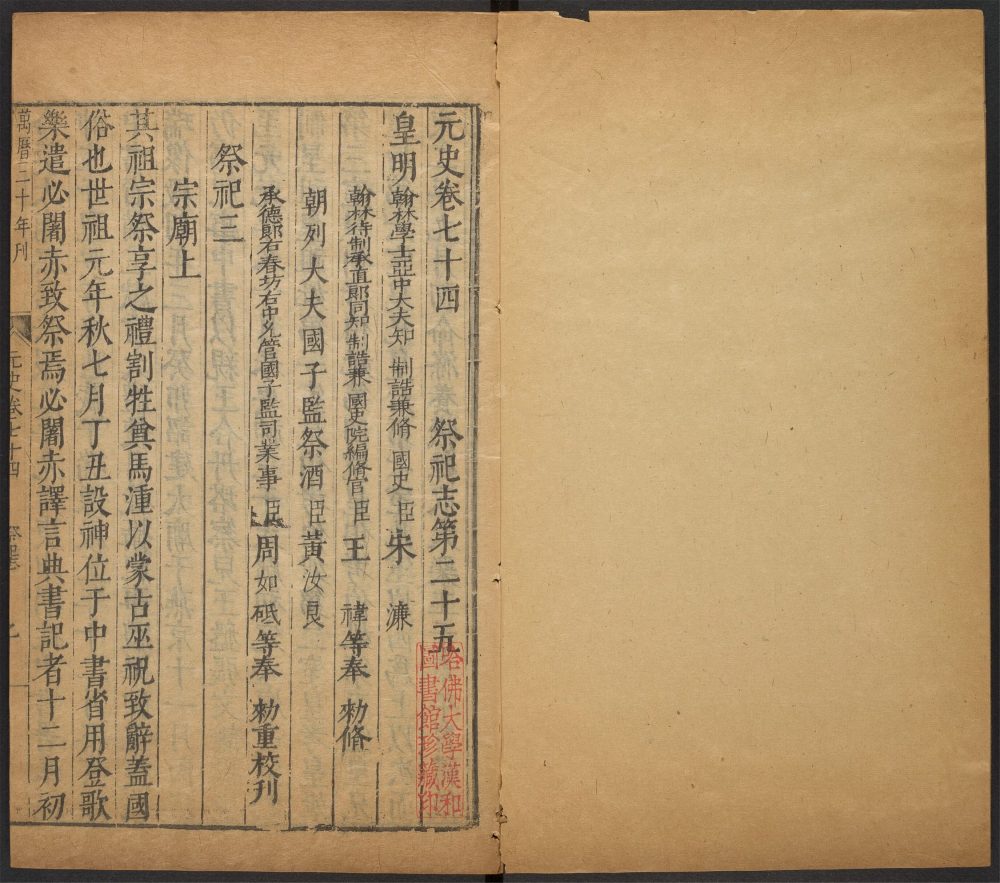 元史卷七十四 祭祀志第二十五
皇明翰林學士亞中大夫知 制誥兼脩 國史臣宋 濂
翰林待制承直郎同知 制誥兼 國史院編脩官臣王 禕等奉 勑脩
朝列大夫國子監祭酒臣黃汝良
承德郎右春坊右中允管國子監司業事臣周如砥等奉 勑重校刊
祭祀三
宗廟上
其祖宗祭享之禮割牲奠馬湩以蒙古巫祝致辭蓋國
俗也世祖元年秋七月丁丑設神位于中書省用登歌
樂遣必闍赤致祭焉必闍赤譯言典書記者十二月初
萬曆二十年刊
元史卷七十四
哈佛大學漢和
圖書館珍藏印